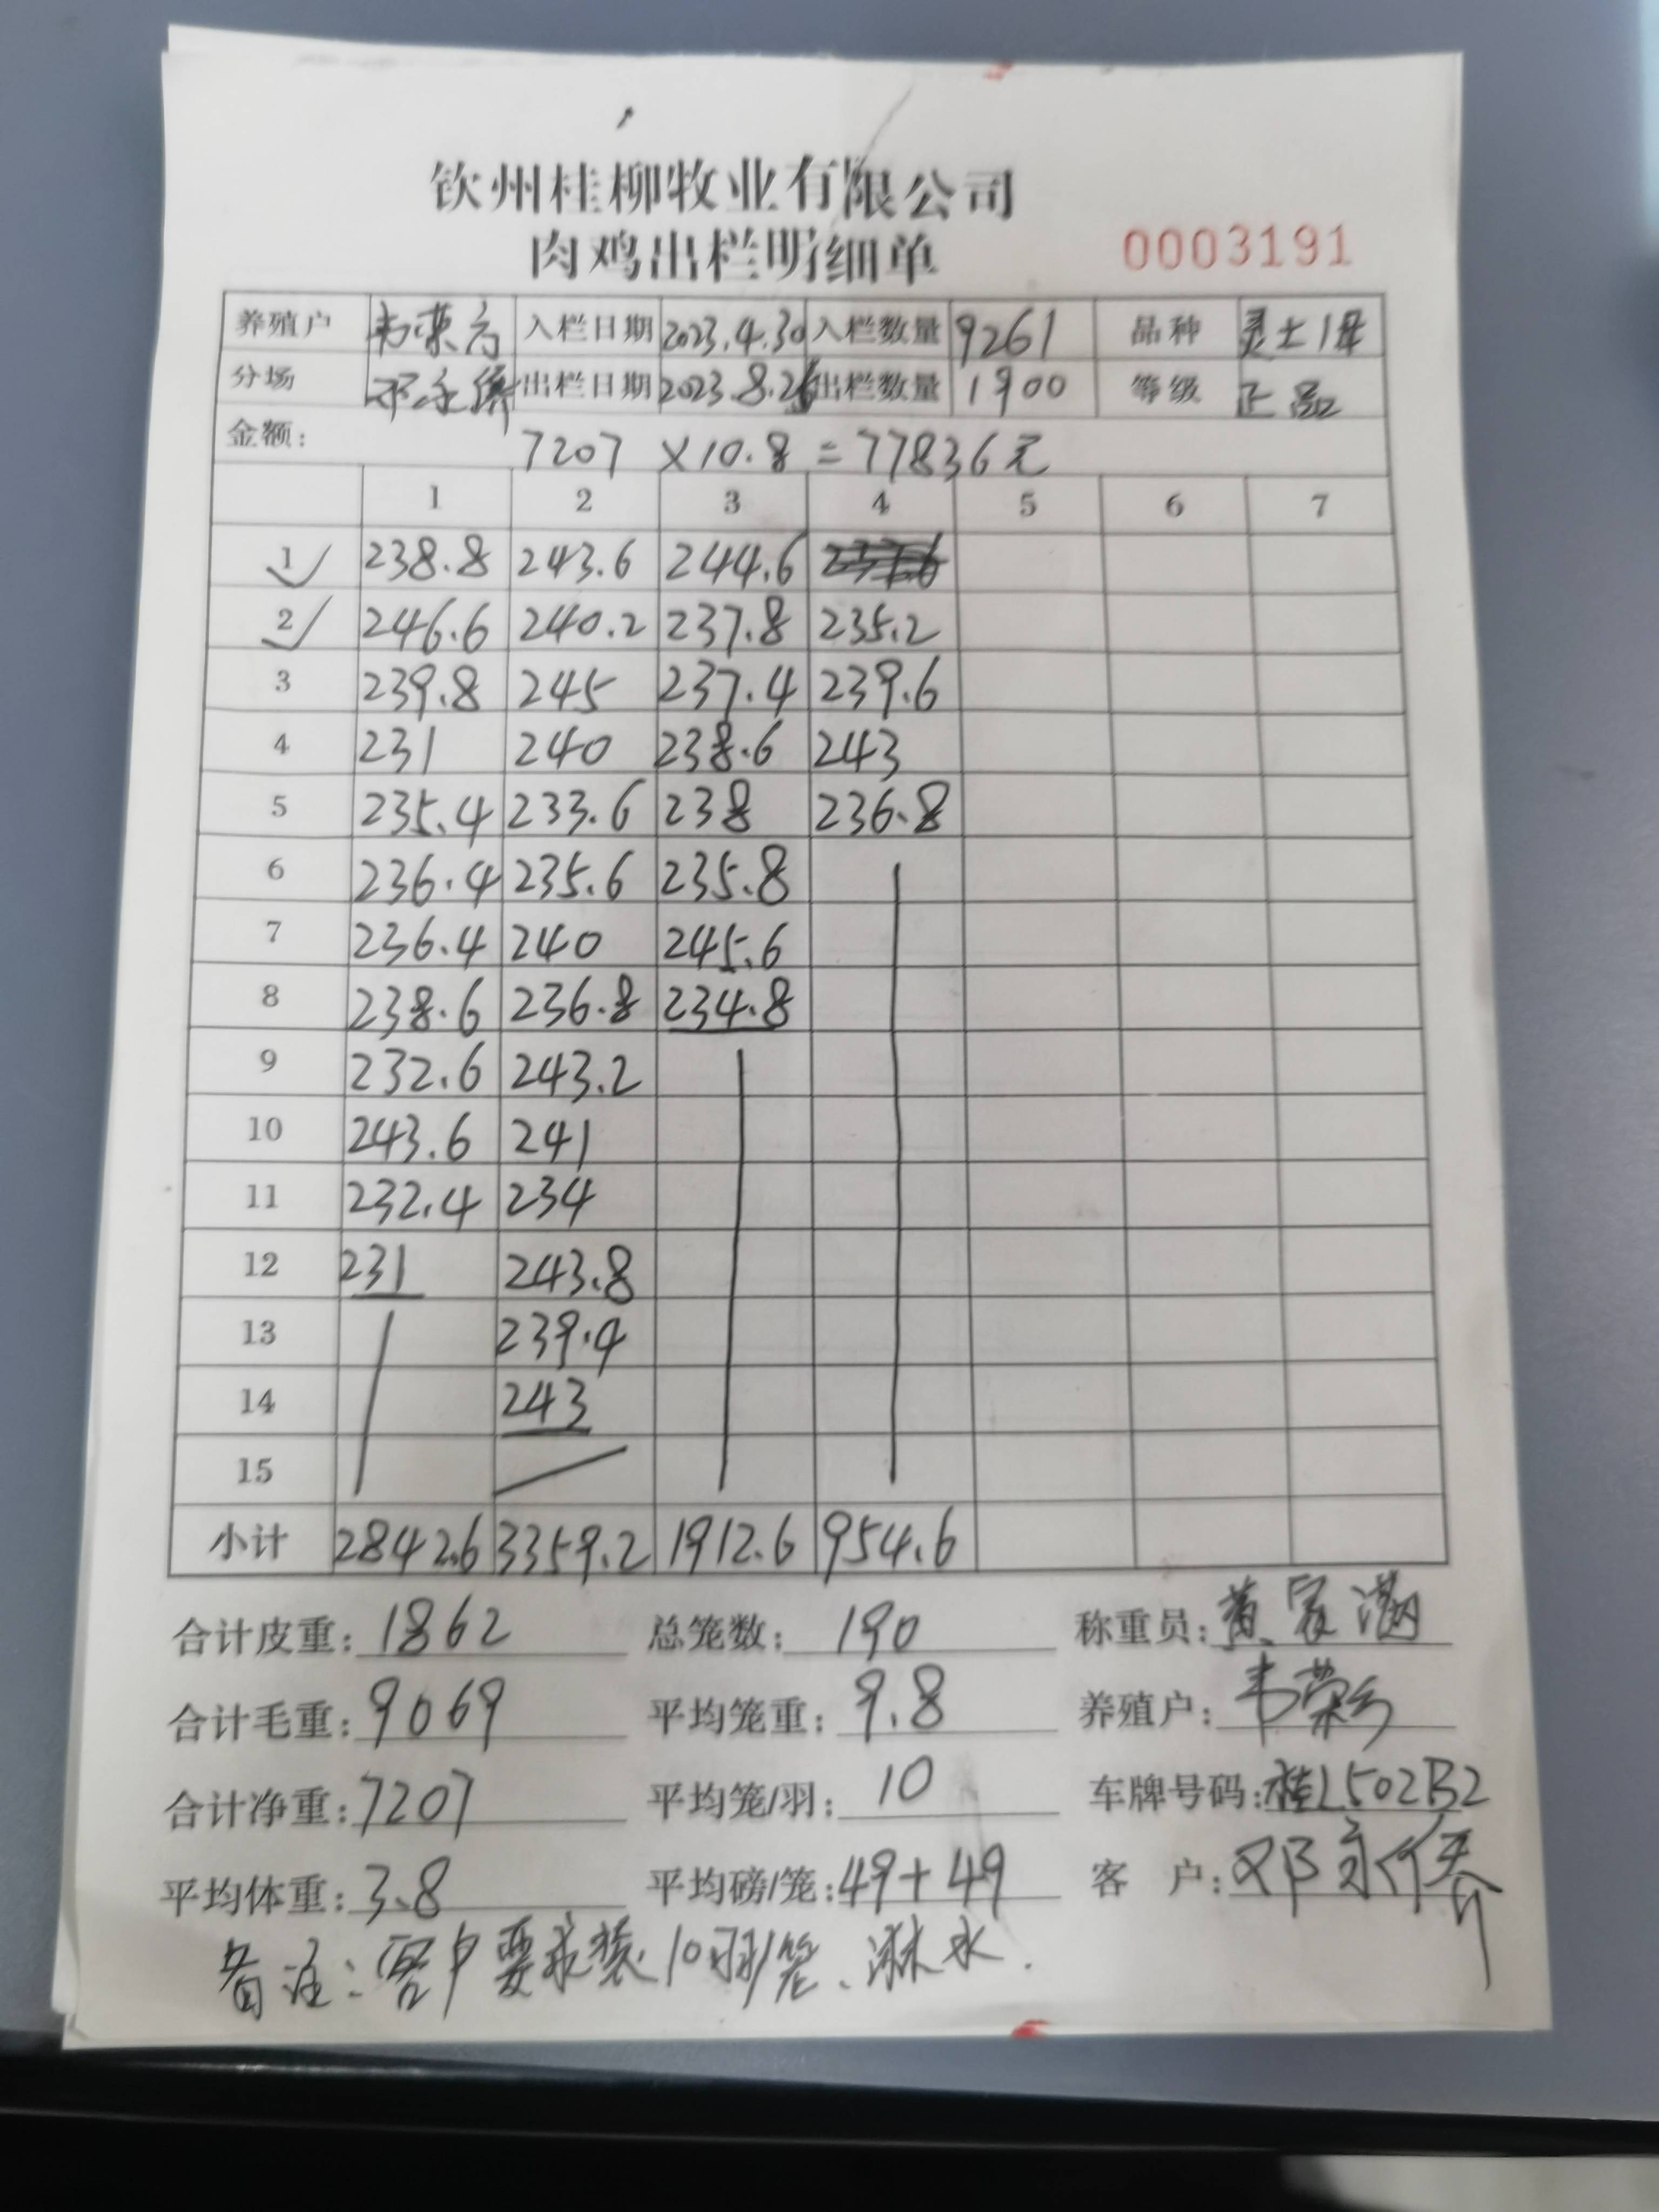 钦州桂柳牧业有限公司
肉鸡出栏明细单 0003191
养殖户 韦荣方 入栏日期 2023.4.30 入栏数量 9261 品种 灵土1母
分场 出栏日期 2023.8.26 出栏数量 1900 等级 正品
金额: 7207 ×10.8 =77836元
1 2 3 4 5 6 7
1 238.8 243.6 244.6
2 246.6 240.2 237.8 235.2
3 239.8 245 237.4 239.6
4 231 240 238.6 243
5 235.4 233.6 238 236.8
6 236.4 235.6 235.8
7 236.4 240 245.6
8 238.6 236.8 234.8
9 232.6 243.2
10 243.6 241
11 232.4 234
12 231 243.8
13 239.4
14 243
15
小计 2842.6 3359.2 1912.6 954.6
合计皮重: 1862 总笼数: 190 称重员: 黄家满
合计毛重: 9069 平均笼重: 9.8 养殖户: 韦荣方
合计净重: 7207 平均笼/羽: 10 车牌号码: 桂L502B2
平均体重: 3.8 平均磅/笼: 49+49 客 户: 邓永
备注: 客户要求装10羽/笼、淋水.